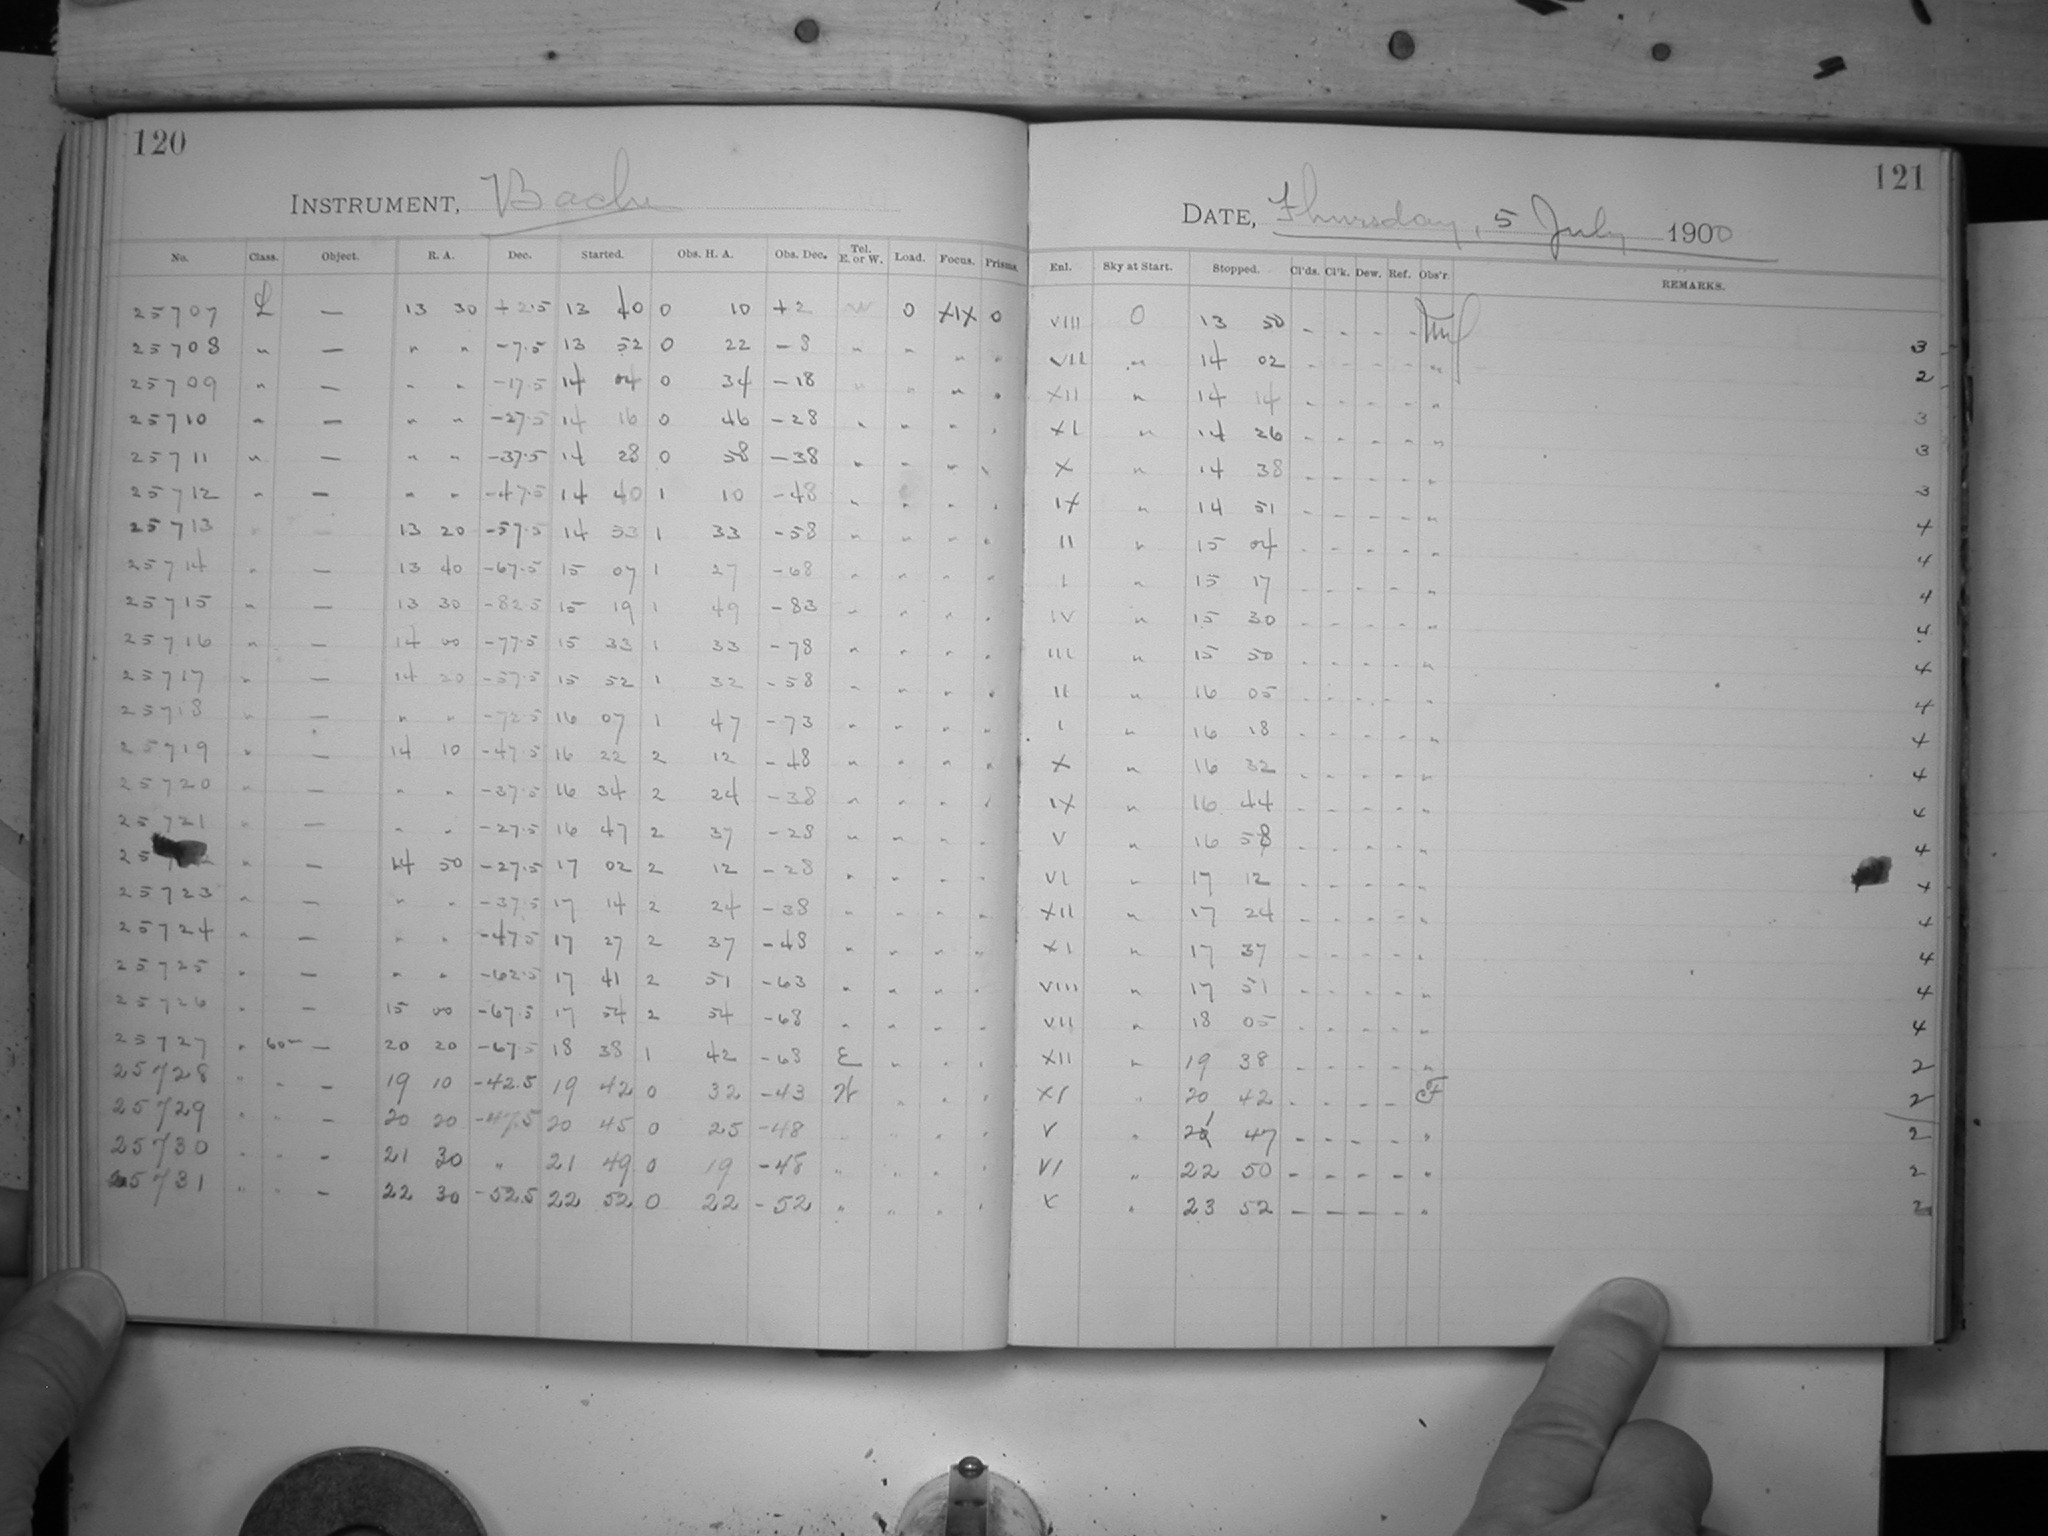 120
INSTRUMENT, Bache
No. Class. Object. R. A. Dec. Started. Obs. H. A. Obs. Dec. Tel. E. or W. Load. Focus. Prisms.
25707 L — 13 30 +2.5 13 40 0 10 +2 W 0 XIX 0
25708 " — " " -7.5 13 52 0 22 -8 " " " "
25709 " — " " -17.5 14 04 0 34 -18 " " " "
25710 " — " " -27.5 14 16 0 46 -28 " " " "
25711 " — " " -37.5 14 28 0 58 -38 " " " "
25712 " — " " -47.5 14 40 1 10 -48 " " " "
25713 " — 13 20 -57.5 14 53 1 33 -58 " " " "
25714 " — 13 40 -67.5 15 07 1 27 -68 " " " "
25715 " — 13 30 -82.5 15 19 1 49 -83 " " " "
25716 " — 14 00 -77.5 15 33 1 33 -78 " " " "
25717 " — 14 20 -57.5 15 52 1 32 -58 " " " "
25718 " — " " -72.5 16 07 1 47 -73 " " " "
25719 " — 14 10 -47.5 16 22 2 12 -48 " " " "
25720 " — " " -37.5 16 34 2 24 -38 " " " "
25721 " — " " -27.5 16 47 2 37 -28 " " " "
25 " — 14 50 -27.5 17 02 2 12 -28 " " " "
25723 " — " " -37.5 17 14 2 24 -38 " " " "
25724 " — " " -47.5 17 27 2 37 -48 " " " "
25725 " — " " -62.5 17 41 2 51 -63 " " " "
25726 " — 15 00 -67.5 17 54 2 54 -68 " " " "
25727 " 60m — 20 20 -67.5 18 38 1 42 -68 E " " "
25728 " " — 19 10 -42.5 19 42 0 32 -43 W " " "
25729 " " — 20 20 -47.5 20 45 0 25 -48 " " " "
25730 " " — 21 30 " 21 49 0 19 -48 " " " "
25731 " " — 22 30 -52.5 22 52 0 22 -52 " " " "
121
DATE, Thursday, 5 July 1900
Enl. Sky at Start. Stopped. Cl'ds. Cl'k. Dew. Ref. Obs'r. REMARKS.
VIII 0 13 50 - - - - 3
VII " 14 02 - - - - " 2
XII " 14 14 - - - - " 3
XI " 14 26 - - - - " 3
X " 14 38 - - - - " 3
IX " 14 51 - - - - " 4
II " 15 04 - - - - " 4
I " 15 17 - - - - " 4
IV " 15 30 - - - - " 4
III " 15 50 - - - - " 4
II " 16 05 - - - - " 4
I " 16 18 - - - - " 4
X " 16 32 - - - - " 4
IX " 16 44 - - - - " 4
V " 16 58 - - - - " 4
VI " 17 12 - - - - " 4
XII " 17 24 - - - - " 4
XI " 17 37 - - - - " 4
VIII " 17 51 - - - - " 4
VII " 18 05 - - - - " 4
XII " 19 38 - - - - " 2
XI " 20 42 - - - - CF 2
V " 47 - - - - " 2
VI " 22 50 - - - - " 2
X " 23 52 - - - - " 2